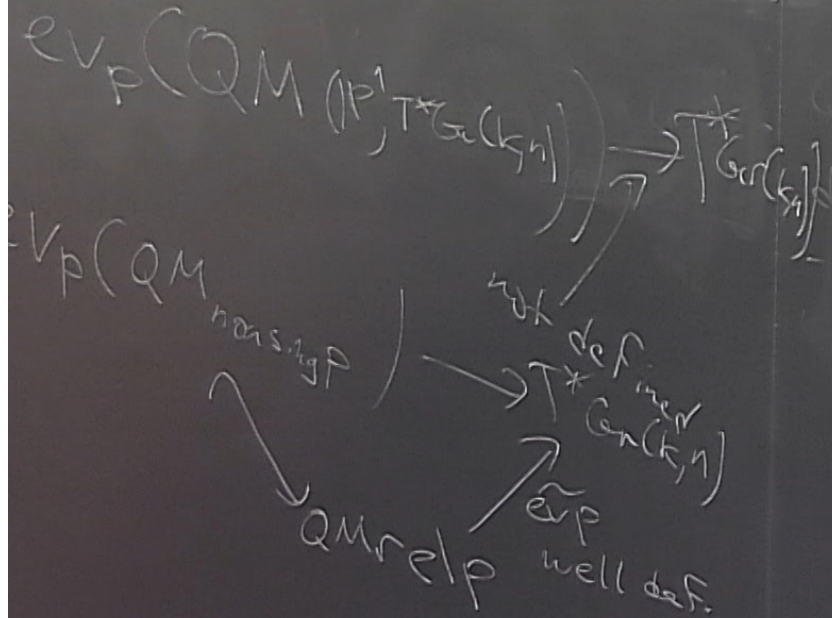 ev_p(QM(P^1, T^*Gr(k,n))) → T^*Gr(k,n)
not defined
ev_p(QM_nonsing p) → T^*Gr(k,n)
QM_rel p
ẽv_p
well def.